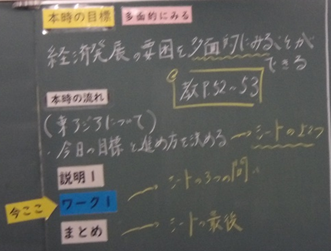 本時の目標 多面的にみる
経済発展の要因を多面的にみることが
できる
教P52~53
本時の流れ
(東アジアについて)
・今日の目標と進め方を決める → シートの上2つ
説明1
今ここ ワーク1 → シートの3つの問い
まとめ → シートの最後